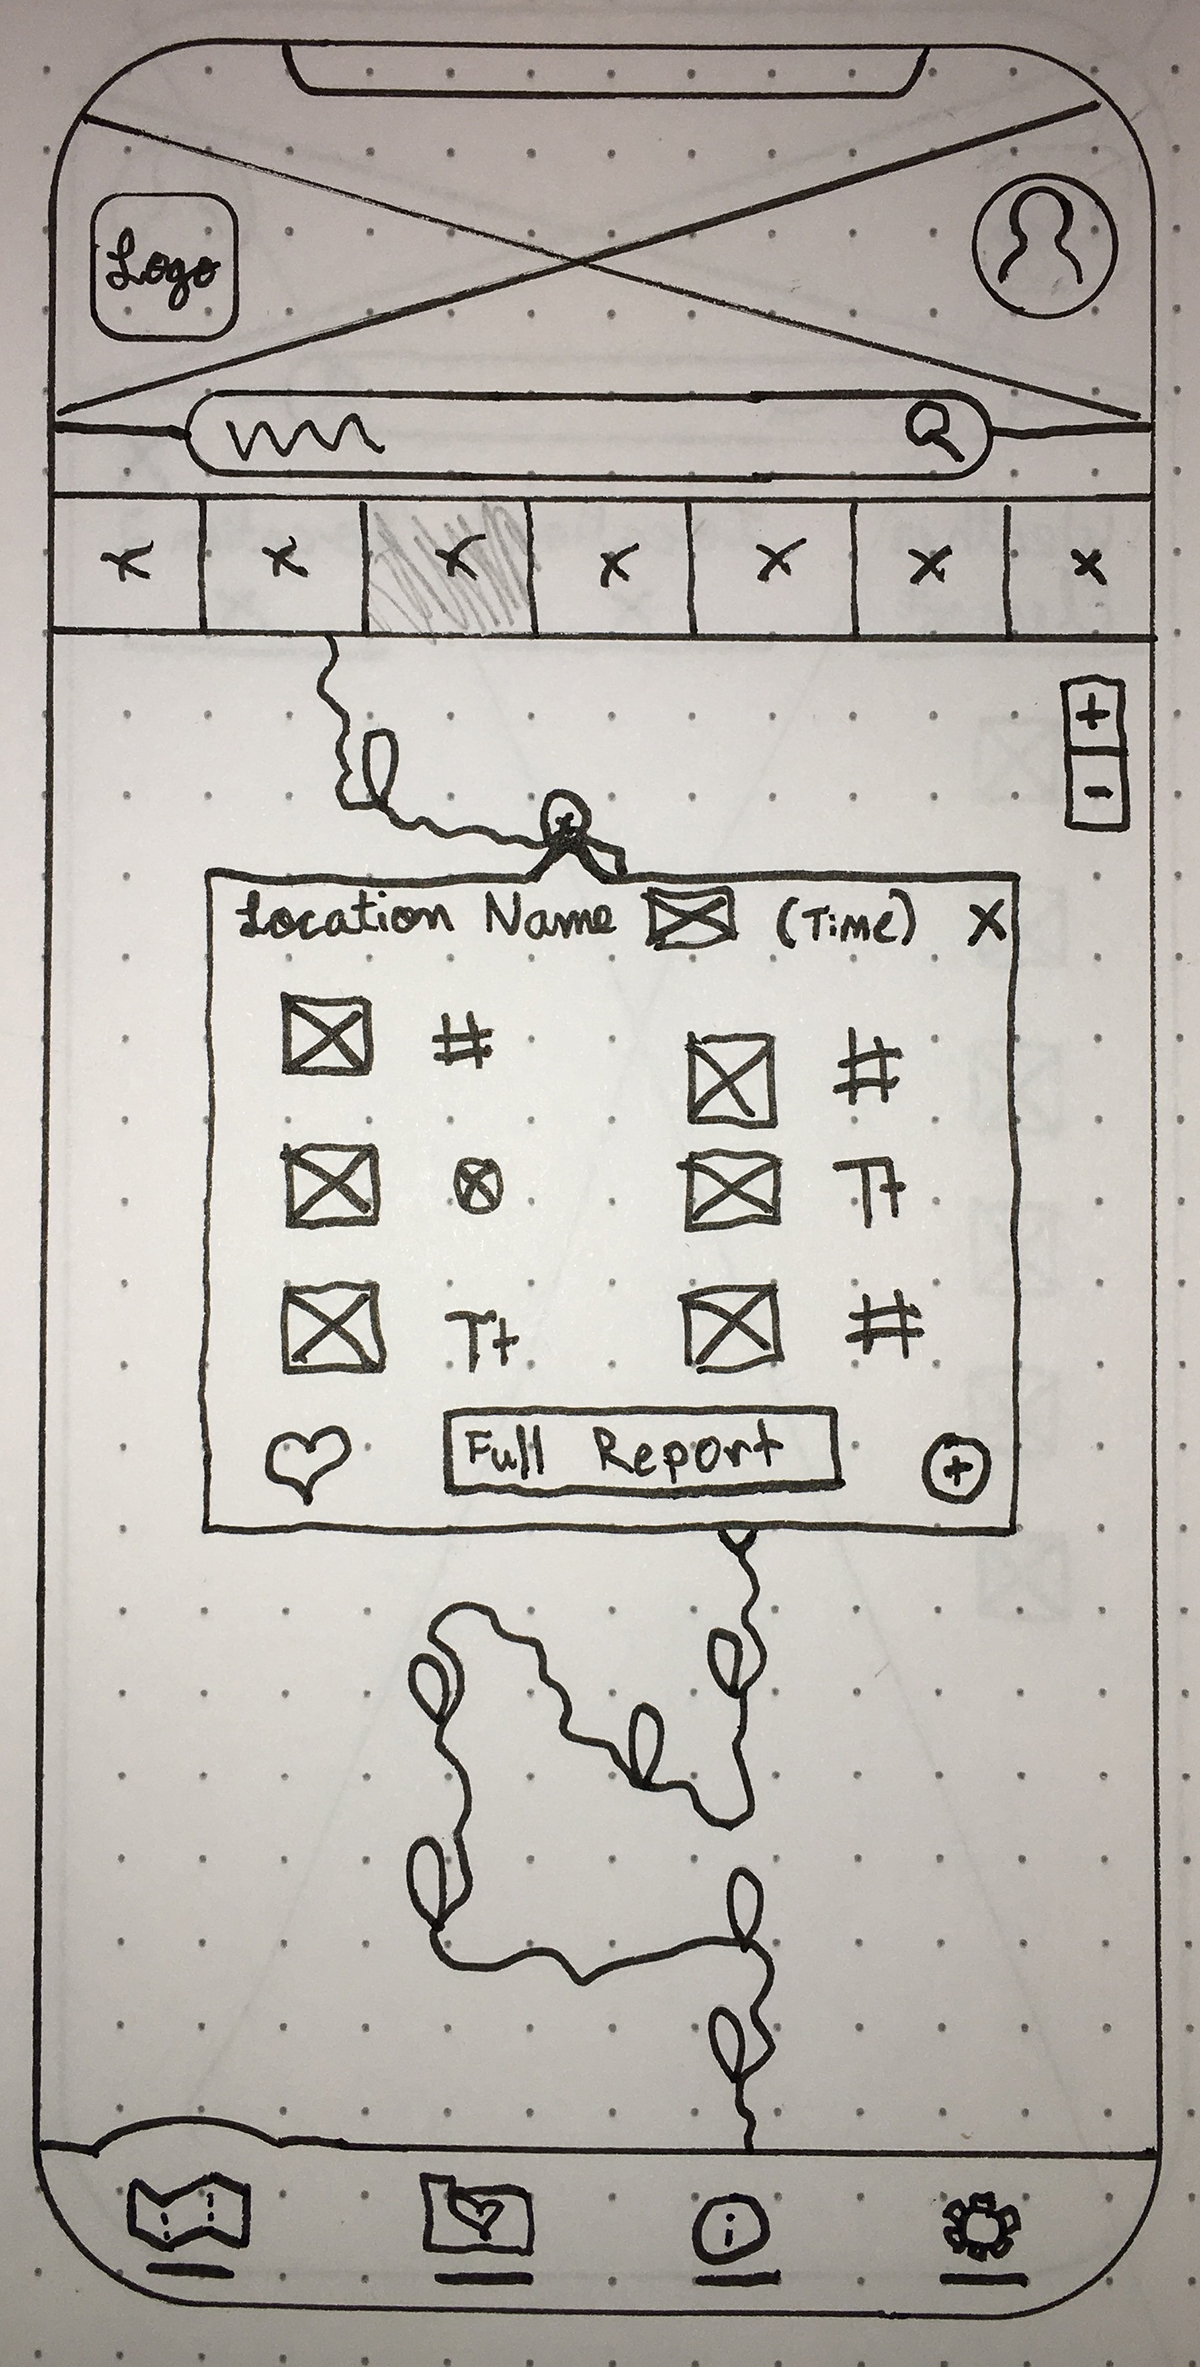 Logo
x x x x x x x
+
-
x
Location Name (Time) X
# #
Tt
Tt #
Full Report +
i